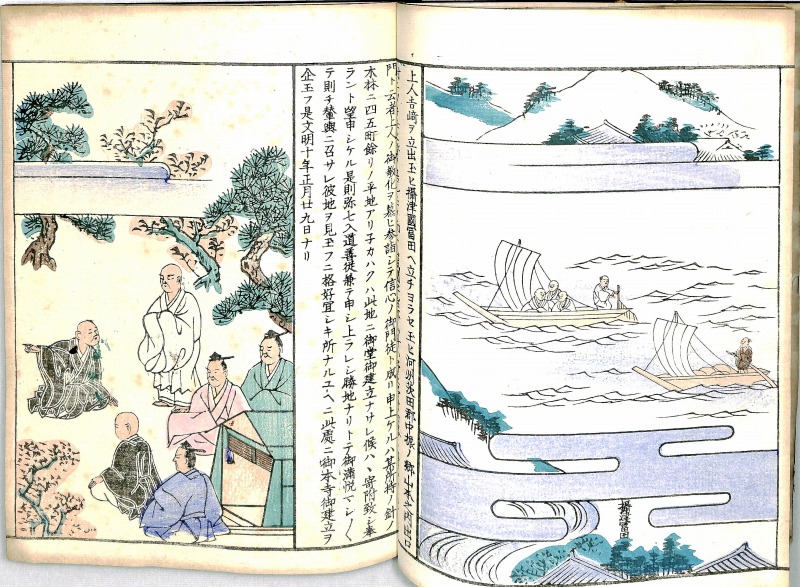 上人吉崎ヲ立出玉ヒ攝津國冨田ヘ立チヨラセ玉ヒ河州茨田郡中振ノ郷山本ノ内出口
門ト云者上人ノ御教化ヲ慕ヒ參詣シテ信心ノ御門徒ト成リ申上ケルハ某所持ノ針ノ
木林ニ四五町餘リノ平地アリ子カハクハ此地ニ御堂御建立ナサレ候ハヽ寄附致シ奉
ラント望申シケル是則弥七入道善徒兼テ申シ上ラレシ勝地ナリトテ御滿悦マシ〳〵
テ則チ輦輿ニ召サレ彼地ヲ見玉フニ格好宜シキ所ナルユヘニ此處ニ御本寺御建立ヲ
企玉フ是文明十年正月廿九日ナリ
攝津冨田